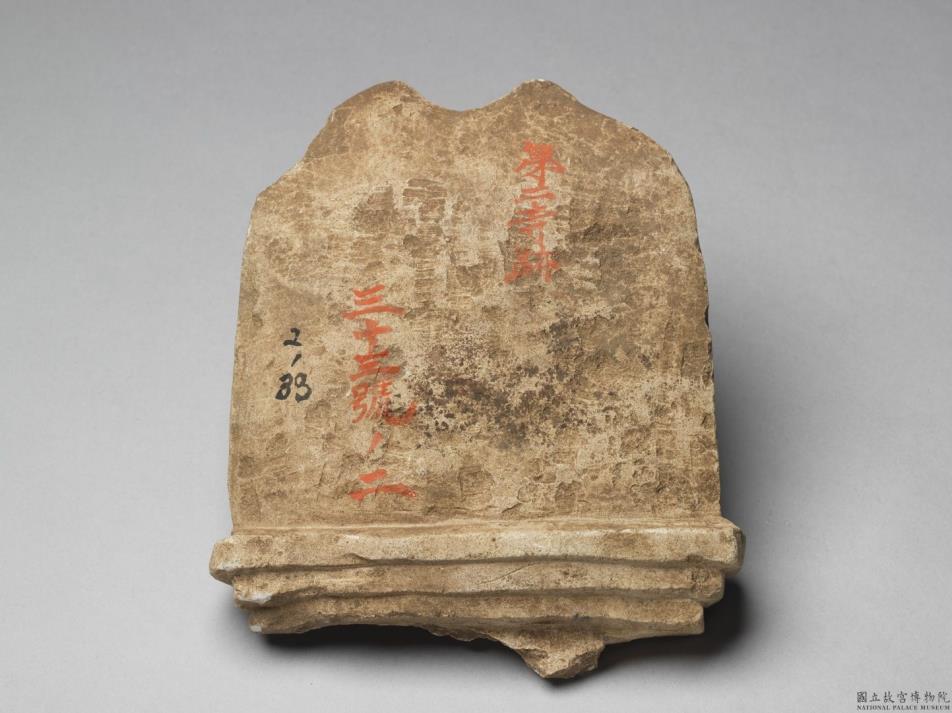 第二寺跡
三十三號ノ二
2
,
33
國立故宮博物院
NATIONAL PALACE MUSEUM